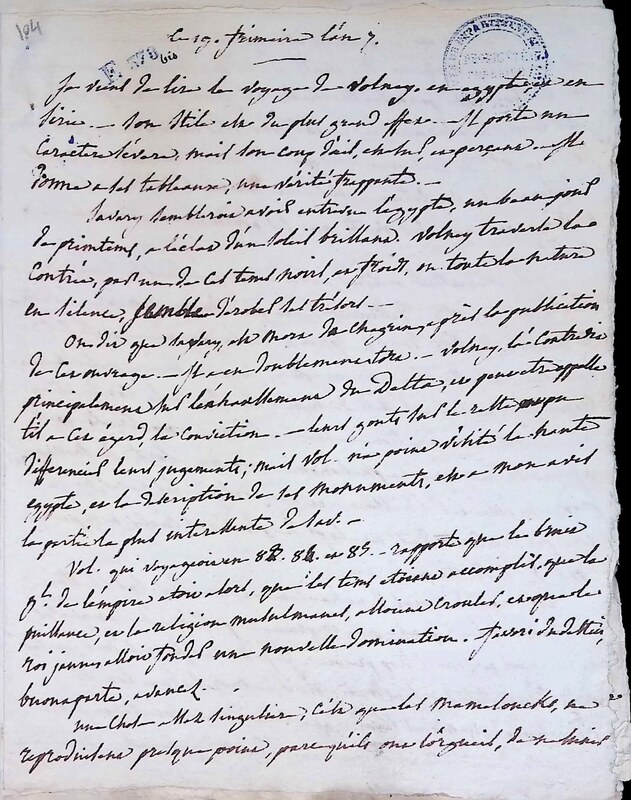 194
F 178 bis
le 19. frimaire l'an 7.
Je viens de lire le voyage de Volney, en egypte et en
Sirie. — Son stile est du plus grand effet. — Il porte un
caractere sévere, mais son coup d'œil, est sur, et perçant. — Il
donne a ses tableaux, une vérité frappante. —
Savary sembleroit avoir entrevu l'egypte, un beau jour
de printems, a l'éclat d'un soleil brillant. Volney traversa la
Contrée, par un de ces tems noirs, et froids, ou toute la nature
en silence, semble dérober ses trésors. —
On dit que Savary, est mort de chagrin, après la publication
de cet ouvrage. — Il a eu doublement tort. — Volney, le contredit
principalement sur l'exhaussement du Delta, et peut etre appelle
t'il a cet égard, la conviction. — leurs gouts sur le reste pu
différencier leurs jugements; mais Vol. n'a point visité la haute
egypte, et la description de ses monuments, est a mon avis
la partie la plus interessante de Sav. —
Vol. qui voyageoit en 83. 84. et 85. — rapporte que le bruit
gl. de l'empire etoit alors, que les tems etoient accomplis, que la
puissance, et la religion musulmanes, alloient crouler, et que le
roi jaune alloit fonder une nouvelle domination. favori du destin,
buonaparte, avancez.
une chose assez singuliere, c'est que les Mamelouks, ne
reproduisent presque point, parcequ'ils ont l'orgueil, de ne